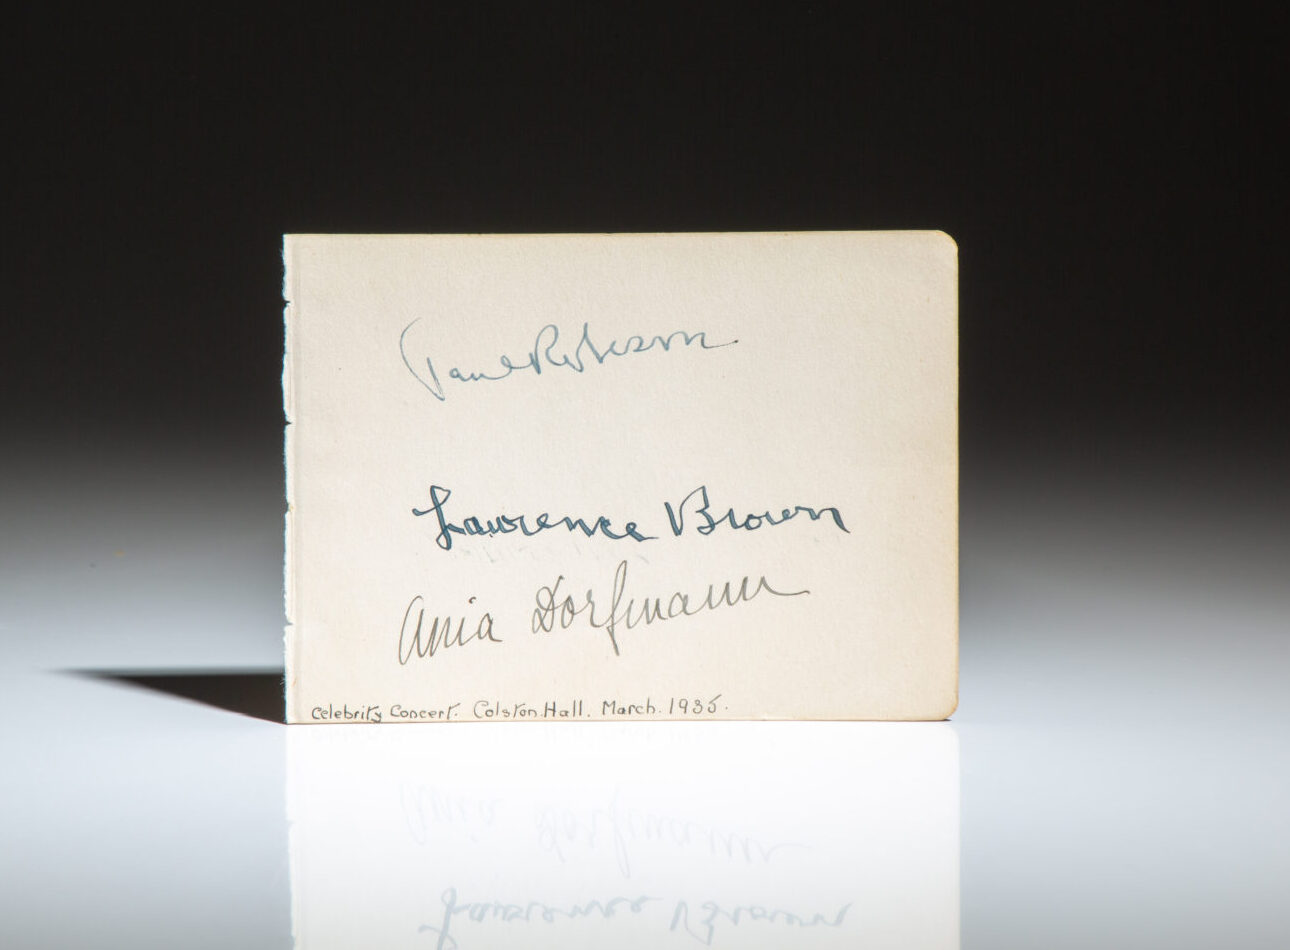 Paul Robeson
Lawrence Brown
Ania Dorfmann
Celebrity Concert. Colston Hall. March. 1935.